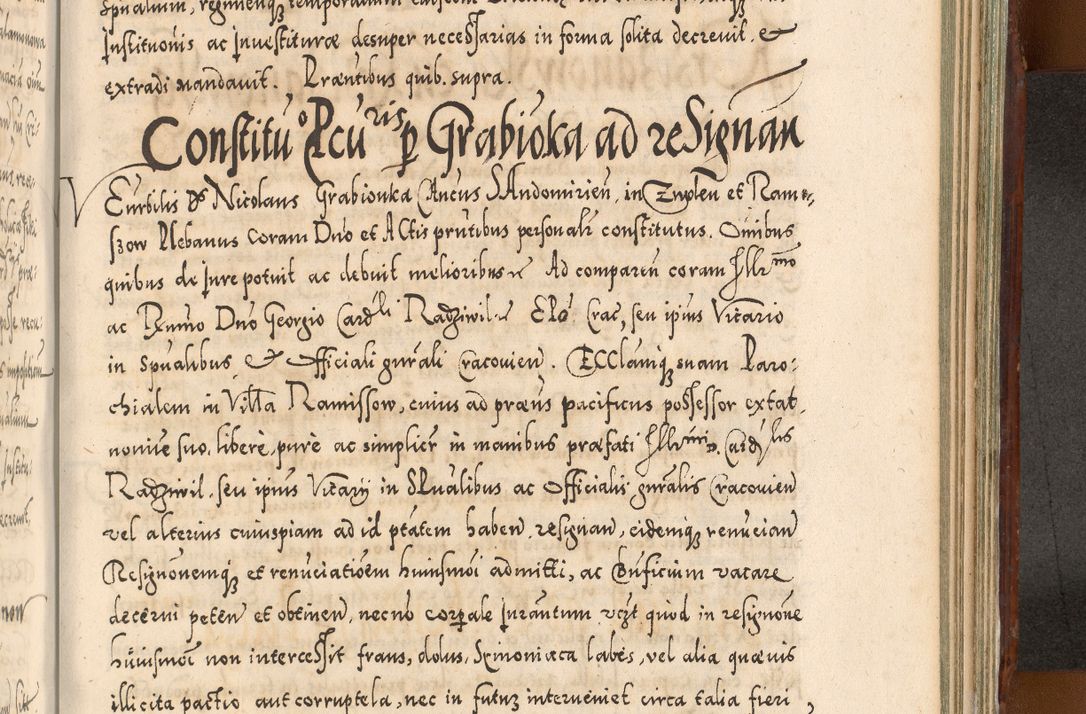 Institnõnis ac Investituræ desuper necessarias in forma solita decrevit. et
extradi mandavit. Præntibus quib. supra.
Constitu° Pcuris p Grabiõka ad resignan
Veñrbilis Ds Nicolaus Grabionka Cancus Sandomirien, in Zwplen et Rame-
szow Plebanus coram Dno et Actis prntibus personalr constitutus. Omibus
quibus de jure potuit ac debuit melioribus Ad comparen coram Illrmo
ac Rmmo Dno Georgio Cardli Radziwil Epo Crac, seu ipius Vicario
in spualibus et officiali gnrali Cracovien. Ecclamq suam Paro-
chialem in Villa Ramissow, cuius ad præns pacificus possessor extat,
nomine suo, libere, pure ac simplicr in manibus præfati Illrmi D. Cardlis
Radziwil, seu ipius Vicarij in spualibus ac officialis gnralis Cracovien
vel alterius cuiuspiam ad id ptatem haben resignan, eidemq renuician
Resignonemq et renuciatioem huiusmoi admitti, ac Bnficium vacare
decerni peten et obtinen, necno corpale jurantum vczt quod in resignone
huiusmoi non intercessit fraus, dolus, Symoniaca labes, vel alia quævis
illicita pactio aut corruptela, nec in futurz interveniet circa talia fieri